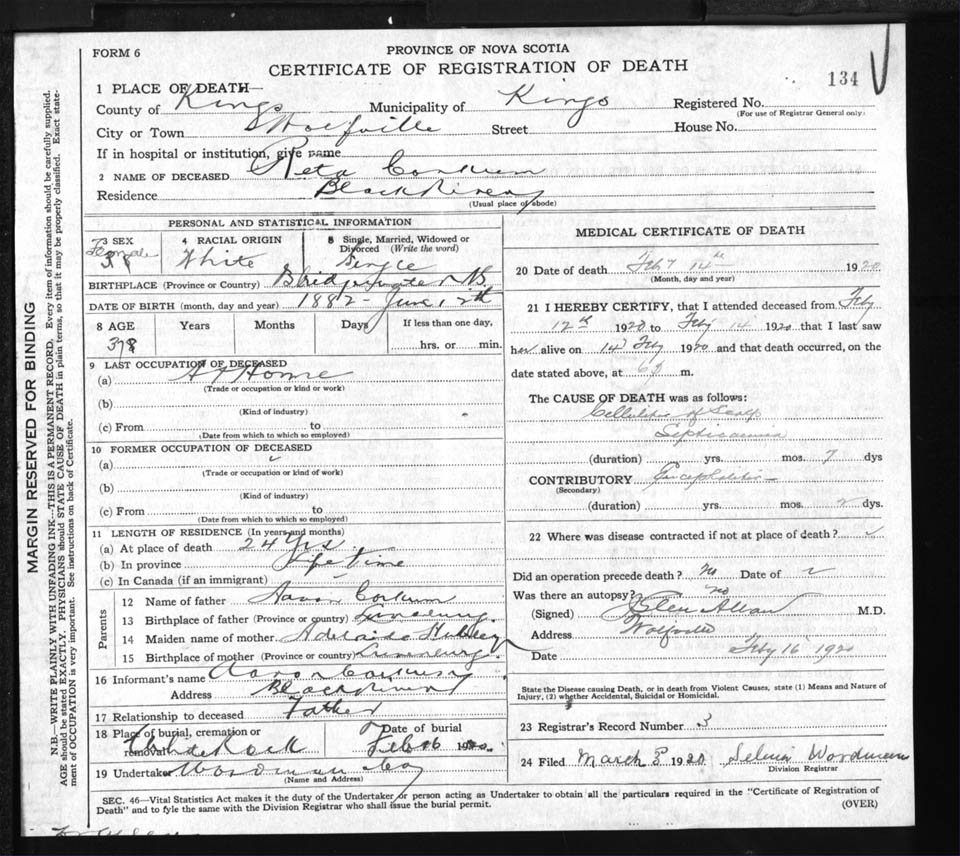 FORM 6
PROVINCE OF NOVA SCOTIA
CERTIFICATE OF REGISTRATION OF DEATH
134
1 PLACE OF DEATH—
County of Kings Municipality of Kings Registered No.
(For use of Registrar General only)
City or Town Wolfville Street House No.
If in hospital or institution, give name
2 NAME OF DECEASED Reta Corkum
Residence Black River
(Usual place of abode)
PERSONAL AND STATISTICAL INFORMATION
3 SEX Female
4 RACIAL ORIGIN White
5 Single, Married, Widowed or Divorced (Write the word) Single
BIRTHPLACE (Province or Country) N.S.
DATE OF BIRTH (month, day and year) 1882 - June
8 AGE Years Months Days If less than one day,
hrs. or min.
9 LAST OCCUPATION OF DECEASED
(a) At Home
(Trade or occupation or kind or work)
(b)
(Kind of industry)
(c) From to
(Date from which to which so employed)
10 FORMER OCCUPATION OF DECEASED
(a)
(Trade or occupation or kind of work)
(b)
(Kind of industry)
(c) From to
(Date from which to which so employed)
11 LENGTH OF RESIDENCE (In years and months)
(a) At place of death 24 Yrs
(b) In province Life Time
(c) In Canada (if an immigrant)
Parents
12 Name of father Aaron Corkum
13 Birthplace of father (Province or country) Lunenburg
14 Maiden name of mother Adelaide
15 Birthplace of mother (Province or country) Lunenburg
16 Informant's name Aaron Corkum
Address Black River
17 Relationship to deceased Father
18 Place of burial, cremation or removal Date of burial
Feb 16 1920.
19 Undertaker Woodman Co
(Name and Address)
MEDICAL CERTIFICATE OF DEATH
20 Date of death Feby 14th 1920
(Month, day and year)
21 I HEREBY CERTIFY, that I attended deceased from Feby
12th 1920 to Feby 14 1920 that I last saw
her alive on 14 Feby 1920 and that death occurred, on the
date stated above, at 6 m.
The CAUSE OF DEATH was as follows:
Cellulitis of Scalp
Septicaemia
(duration) yrs. mos. 7 dys
CONTRIBUTORY Encephalitis
(Secondary)
(duration) yrs. mos. 2 dys.
22 Where was disease contracted if not at place of death?
Did an operation precede death? no Date of
Was there an autopsy? no
(Signed) M.D.
Address Wolfville
Date Feby 16 1920
State the Disease causing Death, or in death from Violent Causes, state (1) Means and Nature of
Injury, (2) whether Accidental, Suicidal or Homicidal.
23 Registrar's Record Number 3
24 Filed March 3 1920
Division Registrar
SEC. 46—Vital Statistics Act makes it the duty of the Undertaker or person acting as Undertaker to obtain all the particulars required in the "Certificate of Registration of
Death" and to fyle the same with the Division Registrar who shall issue the burial permit.
(OVER)
MARGIN RESERVED FOR BINDING
N.B.—WRITE PLAINLY WITH UNFADING INK—THIS IS A PERMANENT RECORD. Every item of information should be carefully supplied.
AGE should be stated EXACTLY. PHYSICIANS should STATE CAUSE OF DEATH in plain terms, so that it may be properly classified. Exact state-
ment of OCCUPATION is very important. See instructions on back of Certificate.